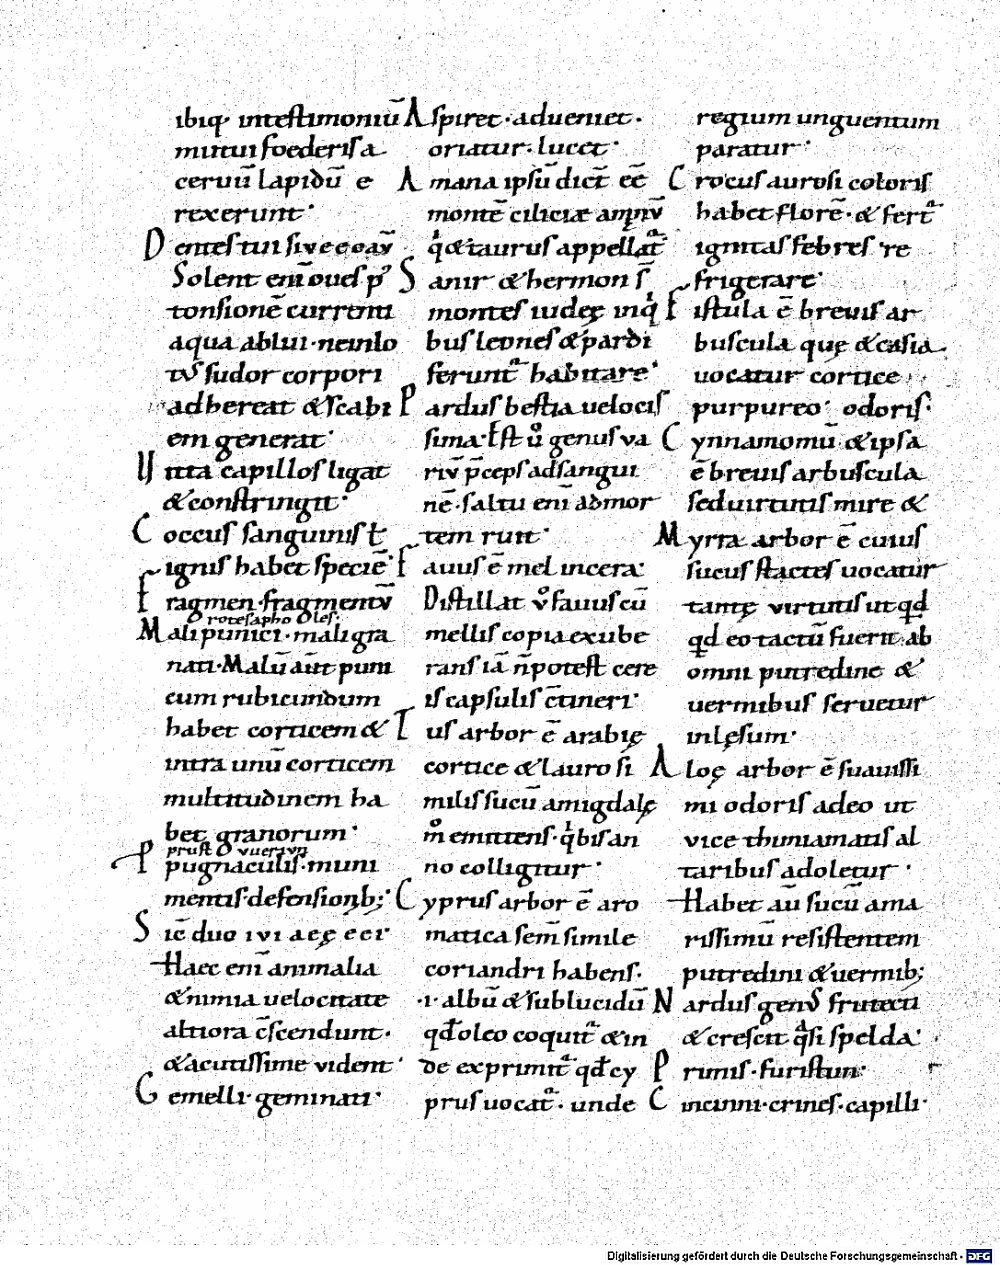 ibiq; intestimoniū
mutui foederis a
ceruū lapidū e
rexerunt·
Dentes tui siue
Solent eni oues p
tonsionē currenti
aqua ablui· ne inlo
tus sudor corpori
adhereat & scabi
em generat·
Uitta capillos ligat
& constringit·
Coccus sanguinis ł
ignis habet speciē·
Fragmen· fragmentū
Mali punici· mali gra
nati· Malū aūt puni
cum rubicundum
habet corticem &
intra unū corticem
multitudinem ha
bet granorum·
Ppugnaculis· muni
mentis· defensionib;
Sic duo
Haec eni animalia
& nimia uelocitate
altiora c̄scendunt·
& acutissime uident·
Gemelli· geminati·
Aspiret· adueniet·
oriatur· lucet·
Amana ipsū dict̄ eē
montē ciliciæ
q & taurus appellat
Sanir & hermon s̄
montes iudeę inq
bus leones & pardi
ferunt habitare·
Pardus bestia uelocis
sima· Est ů genus ua
riū p̄ceps ad sangui
nē· saltu eni ad mor
tem ruit·
Fauus ē mel in cera·
Distillat ů fauus cū
mellis copia exube
rans iā n̄ potest cere
is capsulis c̄tineri·
Tus arbor ē arabię
cortice & lauro si
milis sucū amigdalę
m̊ emittens· qͥ bis an
no colligitur·
Cyprus arbor ē aro
matica sem̄ simile
coriandri habens·
·i· albū & sublucidū
qđ oleo coquit & in
de exprimit qđ cy
prus uocat· unde
regium unguentum
paratur·
Crocus aurosi coloris
habet florē· & fert
ignitas febres re
frigerare·
Fistula ē breuis ar
buscula quę & casia
uocatur cortice
purpureo· odoris·
Cynnamomū & ipsa
ē breuis arbuscula
sed uirtutis mire &
Myrra arbor ē cuius
sucus stactes uocatur
tantę uirtutis ut qd
qd eo tactū fuerit ab
omni putredine &
uermibus seruetur
inlęsum·
Aloę arbor ē suauissi
mi odoris adeo ut
uice thimiamatis al
taribus adoletur·
Habet aū sucū ama
rissimū resistentem
putredini & uermib;
Nardus genus frutecti
& crescit qͣsi spelda·
Primis·
Cincinni· crines· capilli·
Digitalisierung gefördert durch die Deutsche Forschungsgemeinschaft - DFG